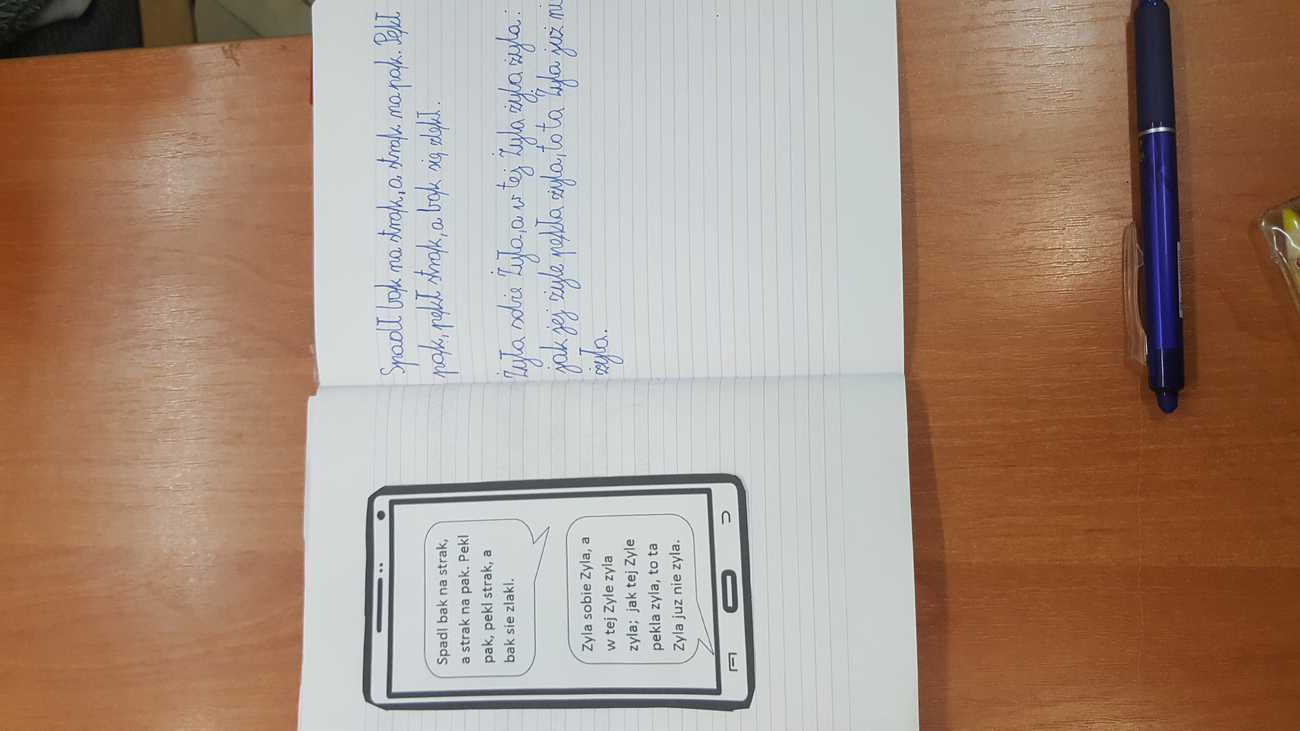 Spadl bak na strak,
a strak na pak. Pekl
pak, pekl strak, a
bak sie zlakl.
Zyla sobie Zyla, a
w tej Zyle zyla
zyla; jak tej Zyle
pekla zyla, to ta
Zyla juz nie zyla.
Spadł bąk na strąk, a strąk na pąk. Pękł
pąk, pękł strąk, a bąk się zlękł.
Żyła sobie Żyła, a w tej Żyła żyła żyła:
jak jej żyle pękła żyła, to ta Żyła już ni
żyła.